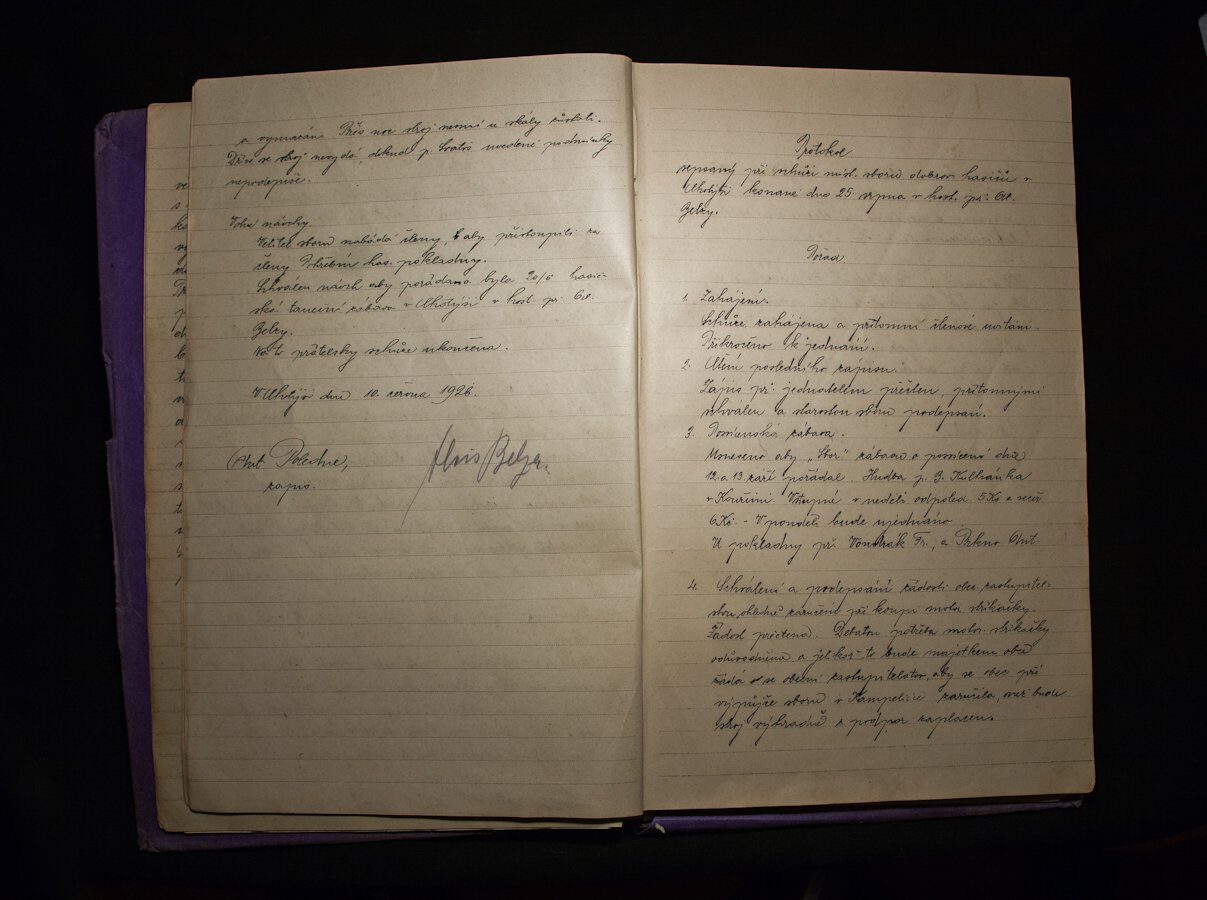 a vymazán. Přes noc stroj nesmí u skály zůstati.
Dříve se stroj nevydá, dokud p. Svatoš uvedené podmínky
nepodepíše.
Volné návrhy
Velitel sboru nabádá členy, aby přistoupili za
členy Pohřební has. pokladny.
Schválen návrh aby pořádána byla 20/6 hasič-
ská taneční zábava v Lhotýši v host. př. Al.
Belzy.
Na to přátelsky schůze ukončena.
V Lhotýši dne 10. června 1926.
Ant. Poledne,
zapis.
Alois Belza.
Protokol
sepsaný při schůzi míst. sboru dobrov. hasičů v
Lhotýši konané dne 25 srpna v host. př. Al.
Belzy.
Pořad
1. Zahájení.
Schůze zahájena a přítomní členové uvítáni.
Přikročeno k jednání.
2. Čtení posledního zápisu.
Zápis př. jednatelem přečten, přítomnými
schválen a starostou sboru podepsán.
3. Posvícenská zábava.
Usneseno aby „Sbor" zábavu o posvícení dne
12. a 13. září pořádal. Hudba p. B. Kulhánka
z Kouřimi. Vstupné v neděli odpoled. 5 Kč a večer
6 Kč. - V pondělí bude ujednáno.
U pokladny př. Vondrák Fr., a Prkno Ant.
4. Schválení a podepsání žádosti obec. zastupitel-
stvu ohledně zaručení při koupi moto stříkačky.
Žádost přečtena. Debatou potřeba motor. stříkačky
odůvodněna a jelikož to bude majetkem obce
žádá se obecní zastupitelstvo, aby se obec při
výpůjčce sboru v Kampeličce zaručila, než bude
stroj výhradně z podpor zaplacen.